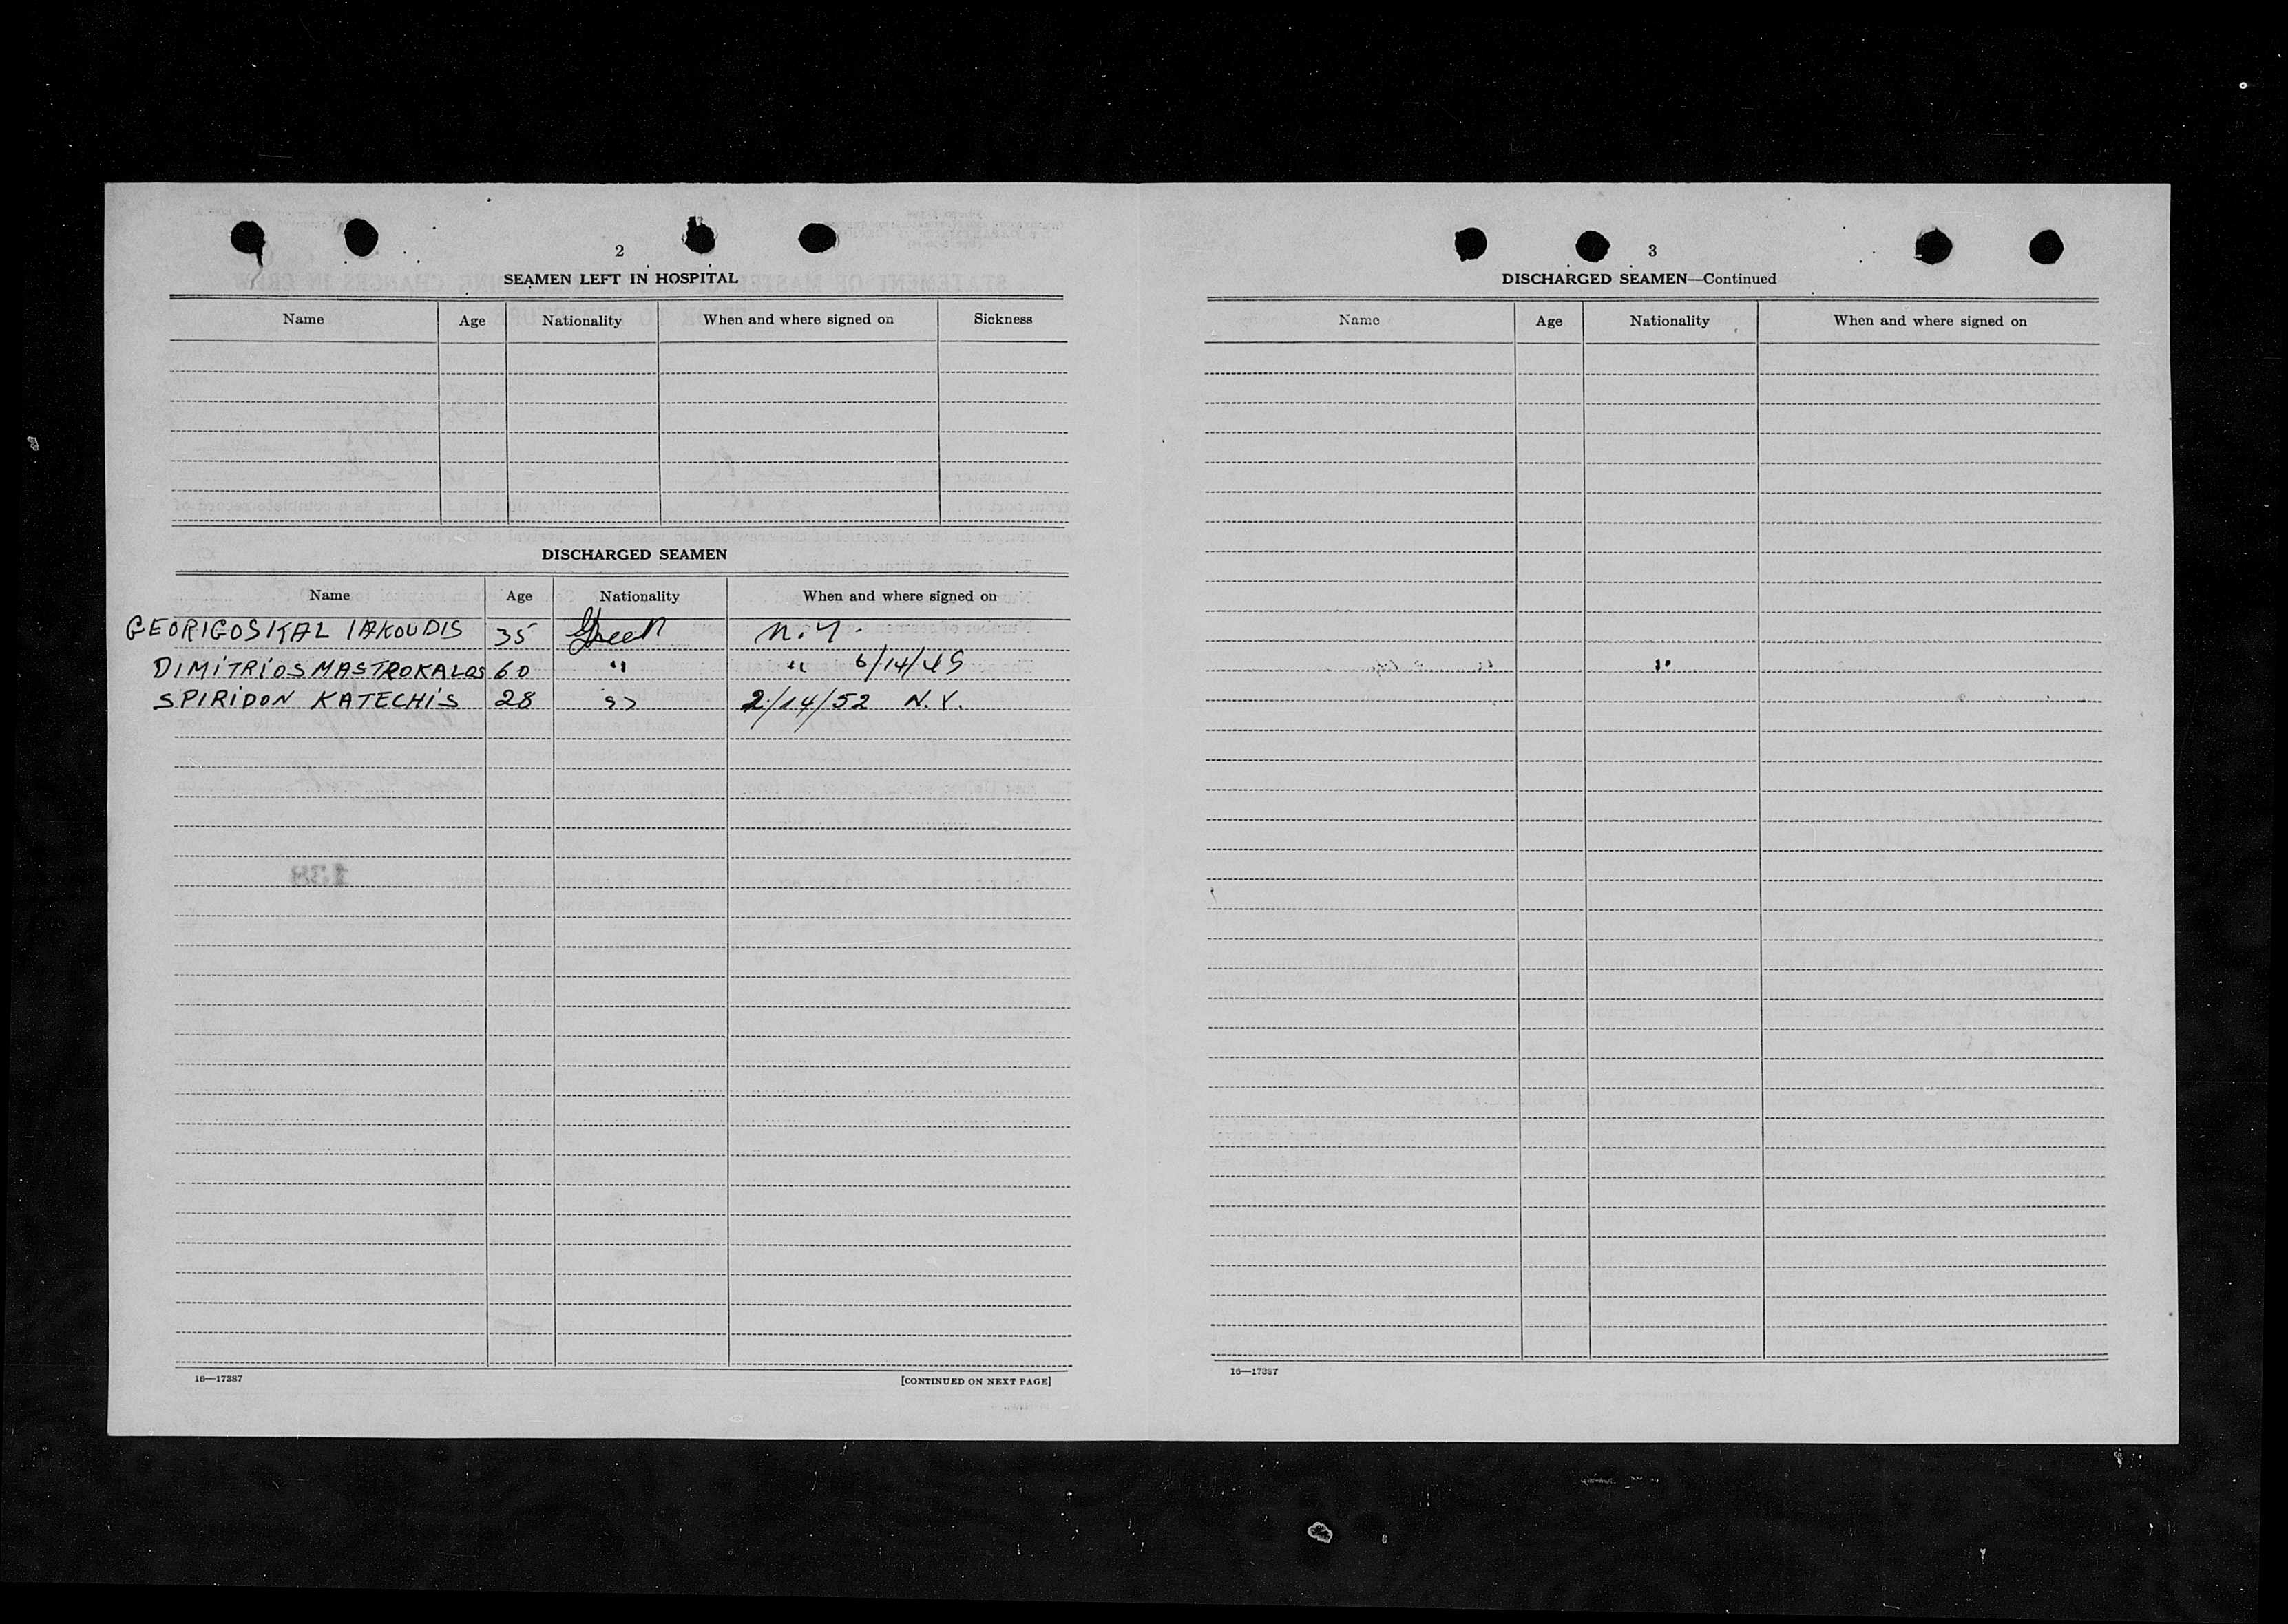 2
SEAMEN LEFT IN HOSPITAL
Name Age Nationality When and where signed on Sickness
DISCHARGED SEAMEN
Name Age Nationality When and where signed on
GEORIGOS KAL IAKOUDIS 35 Greek N.Y.
DIMITRIOS MASTROKALOS 60 " " 6/14/49
SPIRIDON KATECHIS 28 " 2/14/52 N.Y.
16—17387 [CONTINUED ON NEXT PAGE]
3
DISCHARGED SEAMEN—Continued
Name Age Nationality When and where signed on
16—17387